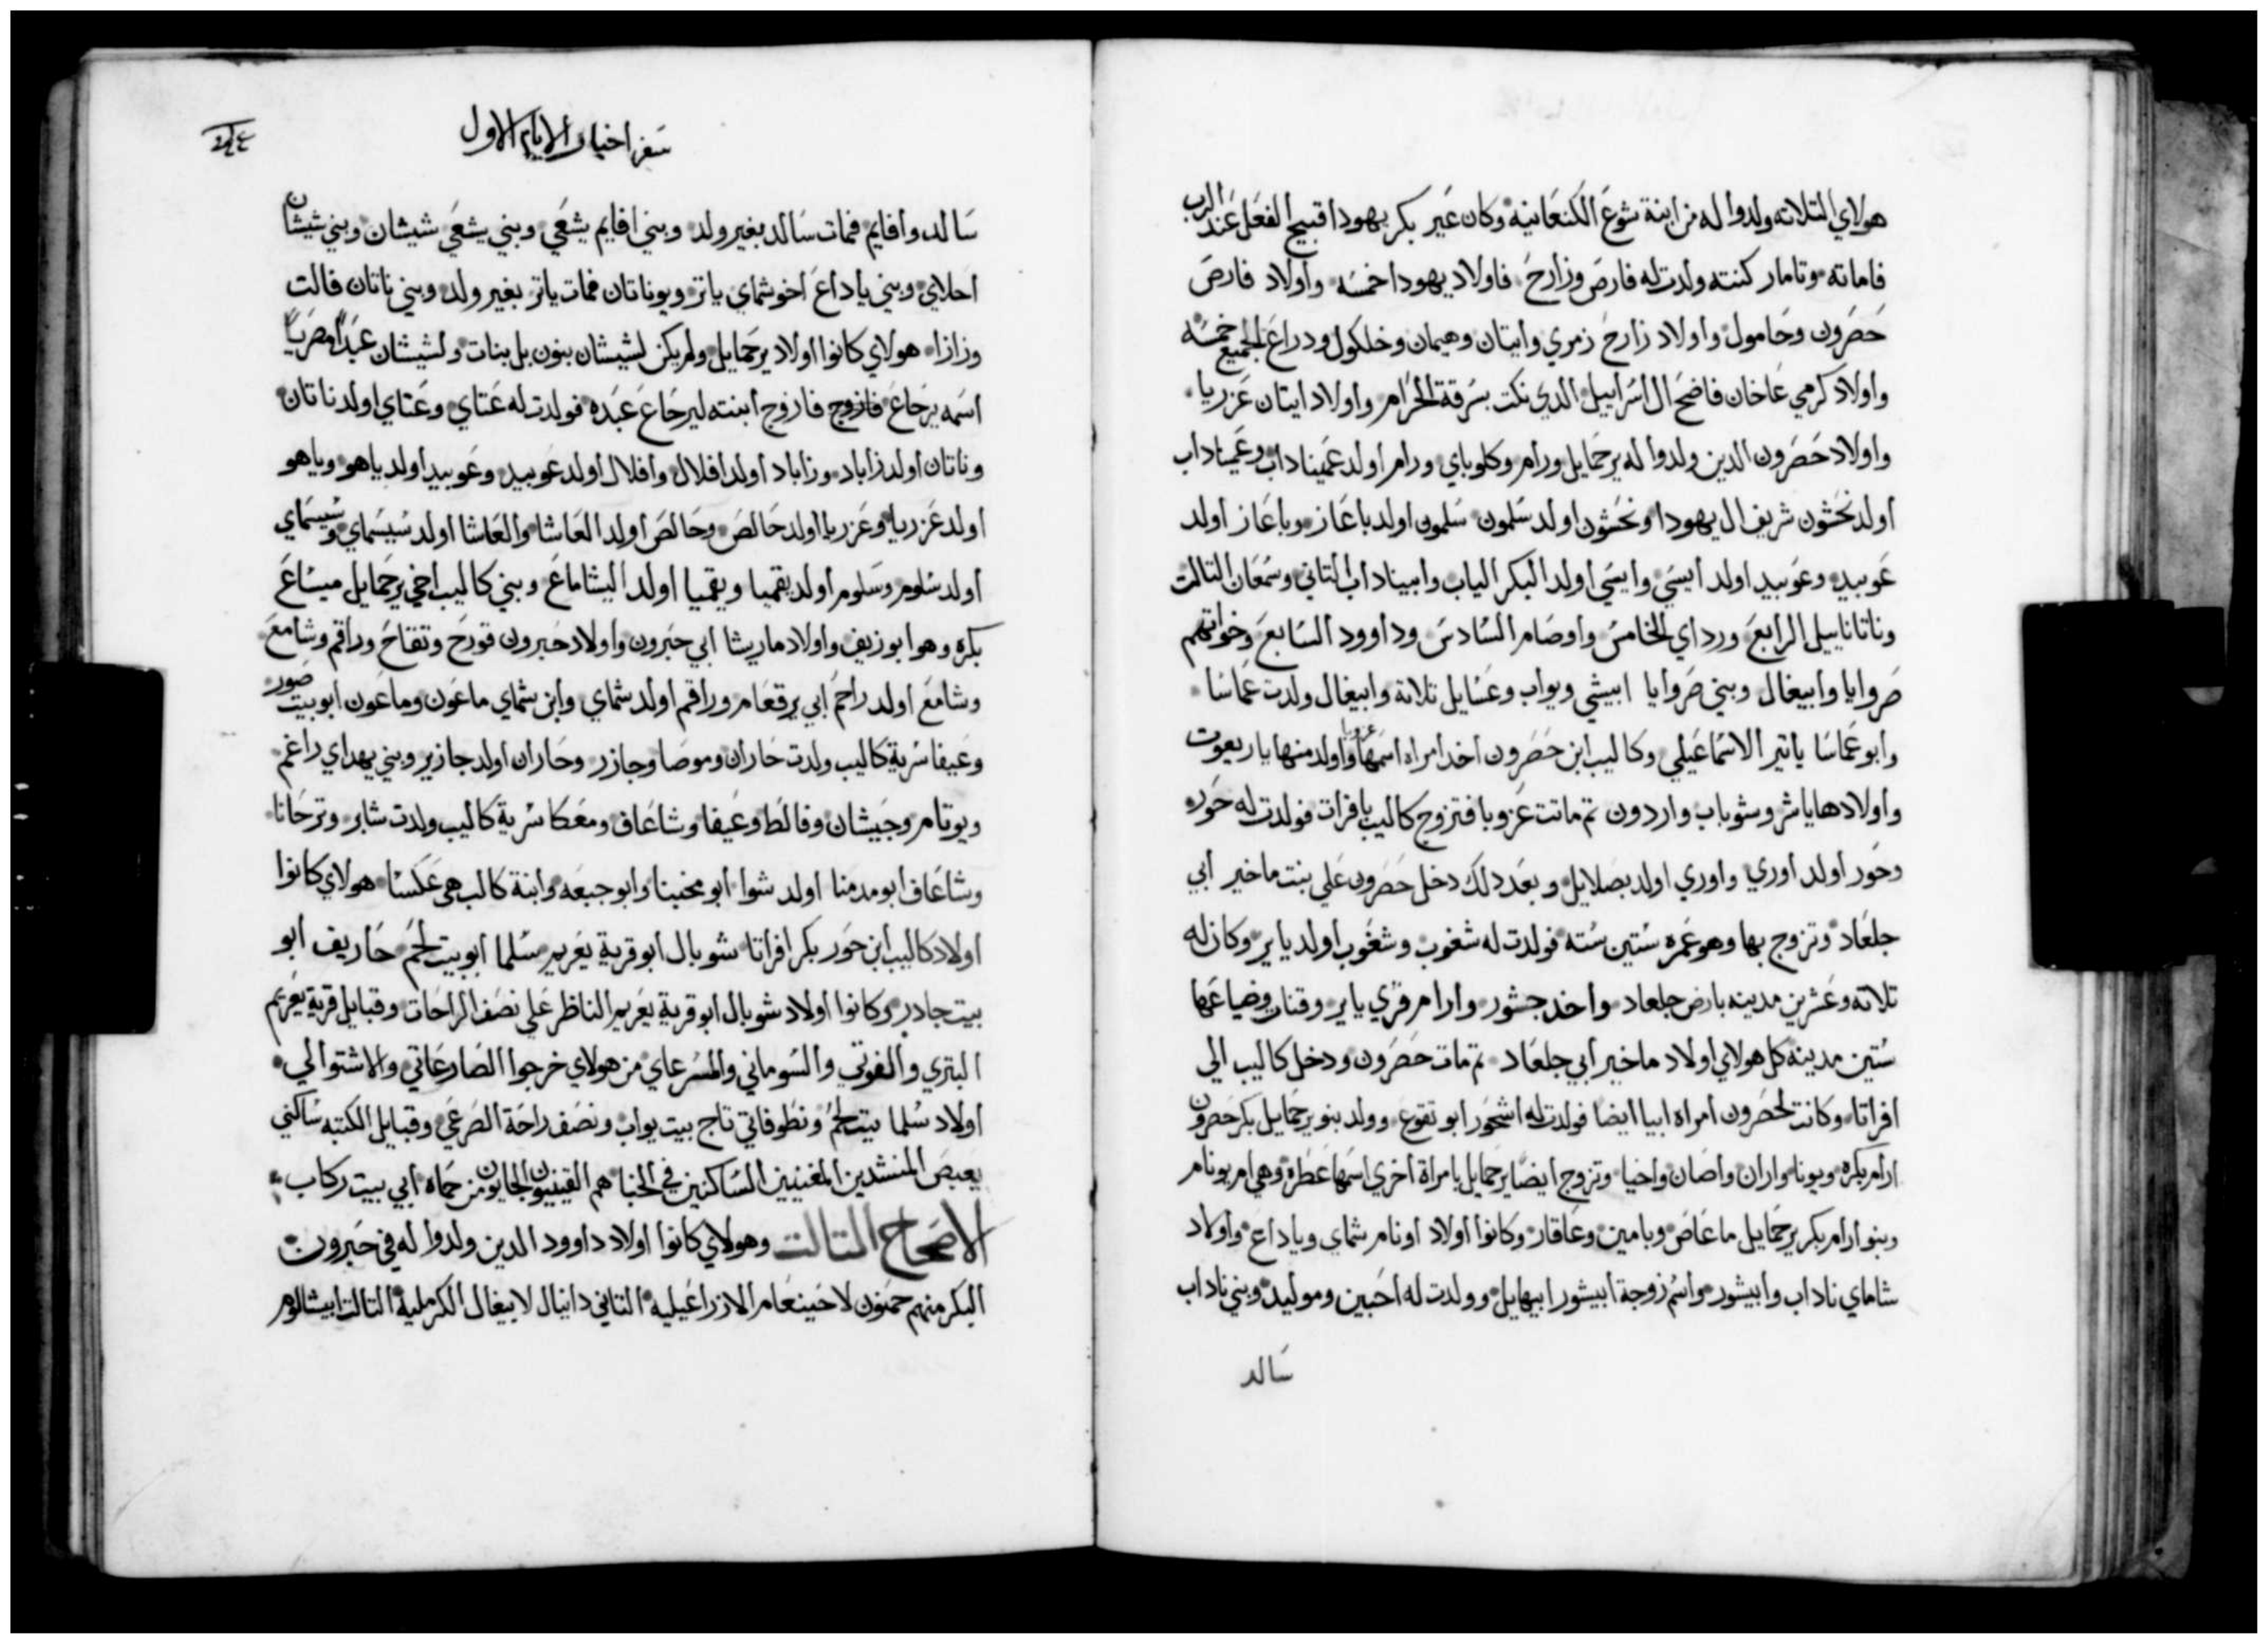 هولاي التلاته ولدوا له من ابنة شوع الكنعانيه وكان عير بكر يهودا قبيح الفعل عند الرب
فاماته وتامار كنته ولدت له فارص وزارح فاولاد يهودا خمسه واولاد فارص
حصرون وحامول واولاد زارح زمري وايتان وهيمان وخلكول ودراع الجميع خمسه
واولاد كرمي عاخان فاضح ال اسراييل الدي نكت بسرقة الحرام واولاد ايتان عزريا
واولاد حصرون الدين ولدوا له يرحمايل ورام وكلوباي ورام اولد عميناداب وعميناداب
اولد نحشون شريف ال يهودا ونحشون اولد سلمون سلمون اولد باعاز وباعاز اولد
عوبيد وعوبيد اولد ايسي وايسي اولد البكر الياب وابيناداب التاني وسمعان التالت
وناتاناييل الرابع ورداي الخامس واوصام السادس وداوود السابع وخواتهم
صروايا وابيغال وبني صروايا ابيشي ويواب وعسايل تلاتة وابيغال ولدت عماسا
وابو عماسا ياتير الاسماعيلي وكاليب ابن حصرون اخد امراه اسمها عزوبا واولد منها ياريعوت
واولادها ياشر وشوباب واردون تم ماتت عزوبا فتزوج كاليب بافرات فولدت له حور
وحور اولد اوري واوري اولد بصلايل وبعد دلك دخل حصرون علي بنت ماخير ابي
جلعاد وتزوج بها وهو عمره ستين سته فولدت له شغوب وشغوب اولد ياير وكان له
تلاته وعشرين مدينه بارض جلعاد واخد جشور وارام قري ياير وقنات وضياعها
ستين مدينه كل هولاي اولاد ماخير ابي جلعاد تم مات حصرون ودخل كاليب الي
افراتا وكانت لحصرون امراه ابيا ايضا فولدت له اشحور ابو تقوع وولد بنو يرحمايل بكر حصرون
ارام بكره وبونا واران واصان واحيا وتزوج ايضا يرحمايل بامراة اخري اسمها عطره وهي ام يونام
وبنو ارام بكر يرحمايل ماعاص ويامين وعاقار وكانوا اولاد اونام شماي وياداع واولاد
شاماي ناداب وابيشور واسم زوجة ابيشور ابيهايل وولدت له احبين وموليد وبني ناداب
سالد
سفر اخبار الايام الاول
سالد وافايم فمات سالد بغير ولد وبني افايم يشعي وبني يشعي شيشان وبني شيشان
احلاي وبني ياداع اخو شماي ياتر ويوناتان فمات ياتر بغير ولد وبني ناتان فالت
وزازا هولاي كانوا اولاد يرحمايل ولم يكن لشيشان بنون بل بنات ولشيشان عبدا مصريا
اسمه يرحاع فازوج فازوج ابنته ليرحاع عبده فولدت له عتاي وعتاي اولد ناتان
وناتان اولد زاباد وزاباد اولد افلال وافلال اولد عوبيد وعوبيد اولد ياهو وياهو
اولد عزريا وعزريا اولد حالص وحالص اولد العاشا والعاشا اولد سيسماي وسيسماي
اولد سلوم وسلوم اولد يقميا ويقميا اولد اليشاماع وبني كاليب اخي يرحمايل ميساع
بكره وهو ابو زيف واولاد ماريشا ابي حبرون واولاد حبرون قورح وتفاح وراقم وشامع
وشامع اولد راحم ابي يرقعام وراقم اولد شماي وابن شماي ماعون وماعون ابو بيت صور
وعيفا سرية كاليب ولدت حاران وموصا وجازر وحاران اولد جازير وبني يهداي راغم
ويوتام وجيشان وفالط وعيفا وشاعاف ومعكا سرية كاليب ولدت شابر وترحانا
وشاعاف ابو مدمنا اولد شوا ابو مخبينا وابو جبعه وابنة كالب هي عكسا هولاي كانوا
اولاد كاليب ابن حور بكر افراتا شوبال ابو قرية يعريم سلما ابو بيت لحم حاريف ابو
بيت جادر وكانوا اولاد شوبال ابو قرية يعريم الناظر علي نصف الراحات وقبايل قرية يعريم
البتري والفوتي والسوماني والمسرعاي من هولاي خرجوا الصارعاتي والاشتوالي
اولاد سلما بيت لحم ونطوفاتي تاج بيت يواب ونصف راحة الصرعي وقبايل الكتبه ساكني
يعبص المنشدين المغنيين الساكنين في الخبا هم القينيون الجايون من حماه ابي بيت ركاب
الاصحاح التالت وهولاي كانوا اولاد داوود الدين ولدوا له في حبرون
البكر منهم حمنون لاحينعام الازراعيليه التاني دانيال لابيغال الكرمليه التالت ابيشالوم